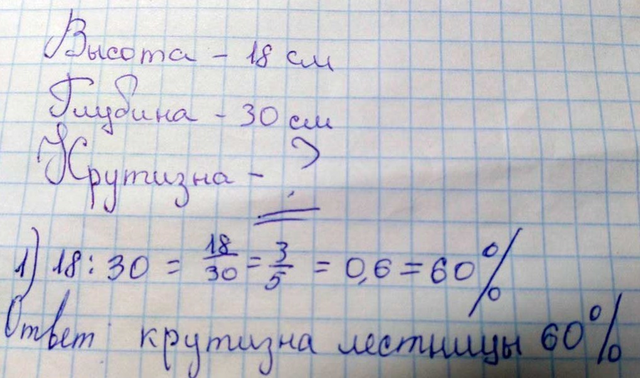 Высота - 18 см
Глубина - 30 см
Крутизна - ?
1) 18 : 30 = 18/30 = 3/5 = 0,6 = 60%
Ответ: крутизна лестницы 60%